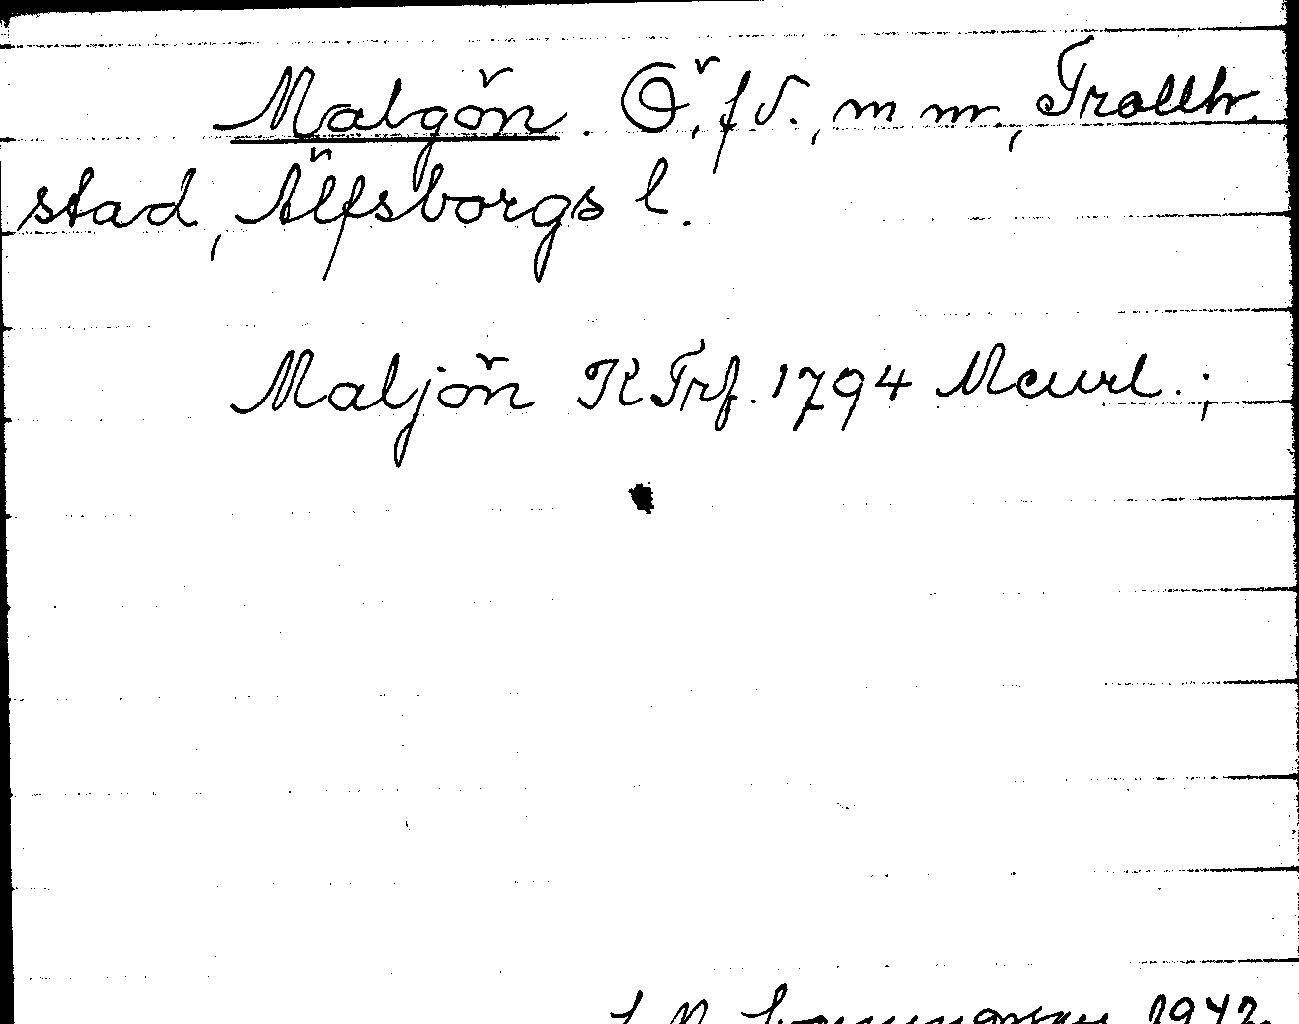 Malgön. Ö, f d., m m., Trollh.
stad, Älfsborgs l.
Maljön K Trf. 1794 Meurl.;
1942.